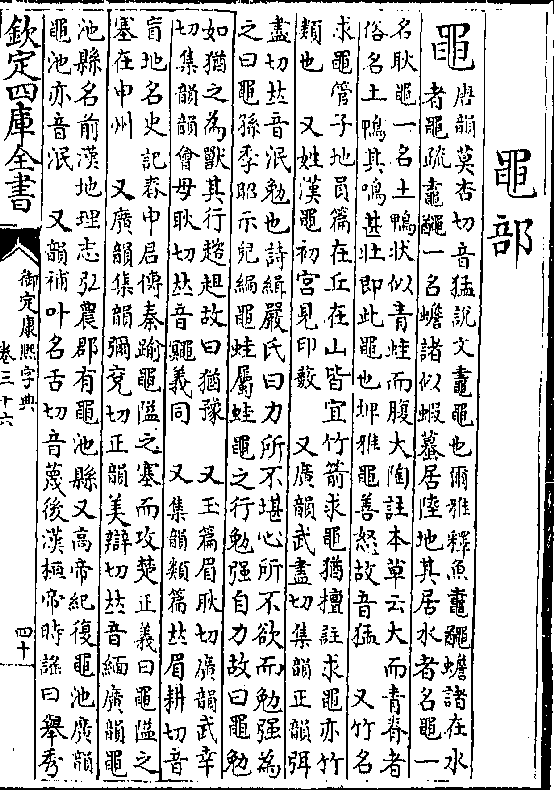 黽部
黽
唐韻莫杏切音猛說文鼃黽也爾雅釋魚鼁𪓰蟾諸在水
者黽疏鼁𪓰一名蟾諸似蝦蟇居陸地其居水者名黽一
名耿黽一名土鴨狀似青蛙而腹大陶註本草云大而青脊者
俗名土鴨其鳴甚壯即此黽也埤雅黽善怒故音猛 又竹名
求黽管子地員篇在丘在山皆宜竹箭求黽猶檀註求黽亦竹
類也 又姓漢黽初宮見印藪 又廣韻武盡切集韻正韻弭
盡切𠀤音泯勉也詩緝嚴氏曰力所不堪心所不欲而勉强為
之曰黽孫季昭示兒編黽蛙屬蛙黽之行勉强自力故曰黽勉
如猶之為獸其行趑趄故曰猶豫 又玉篇眉耿切廣韻武幸
切集韻韻會母耿切𠀤音鼆義同 又集韻類篇𠀤眉耕切音
盲地名史記春申君傳秦踰黽隘之塞而攻楚正義曰黽隘之
塞在申州 又廣韻集韻彌兖切正韻美辯切𠀤音緬廣韻黽
池縣名前漢地理志弘農郡有黽池縣又高帝紀復黽池廣韻
黽池亦音泯 又韻補叶名舌切音蔑後漢桓帝時謠曰舉秀
欽定四庫全書
御定康熙字典
卷三十六
四十